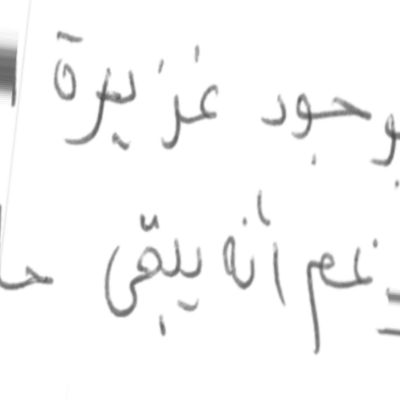 بوجود غزيرة
غم أنه يبقى حا